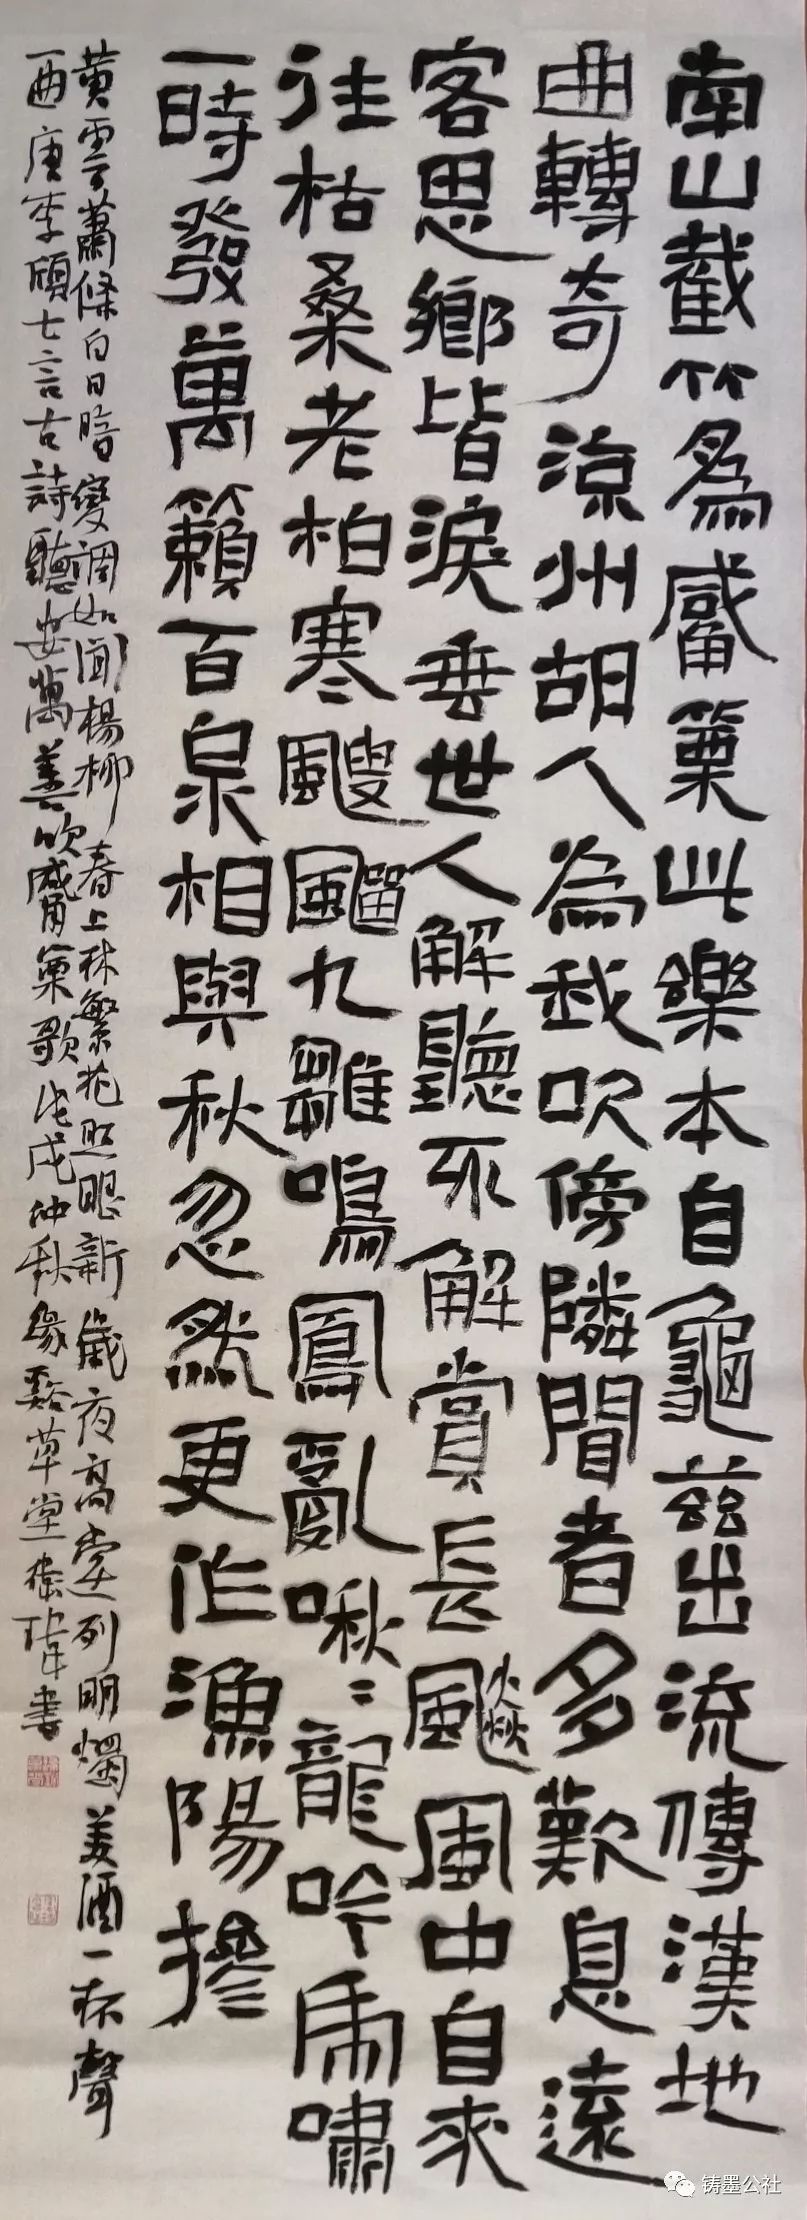 南山截竹爲觱篥此樂本自龜茲出流傳漢地
曲轉奇涼州胡人為我吹傍隣聞者多歎息遠
客思鄉皆淚垂世人解聽不解賞長飆風中自來
往枯桑老柏寒颼飀九雛鳴鳳亂啾〻龍吟虎嘯
一時發萬籟百泉相與秋忽然更作漁陽摻
黄雲蕭條白日暗變調如聞楊柳春上林繁花照眼新歲夜高堂列明燭美酒一杯聲
一西唐李頎七言古詩聽安萬善吹觱篥歌戊戌仲秋緣谿草堂 瑋書
铸墨公社